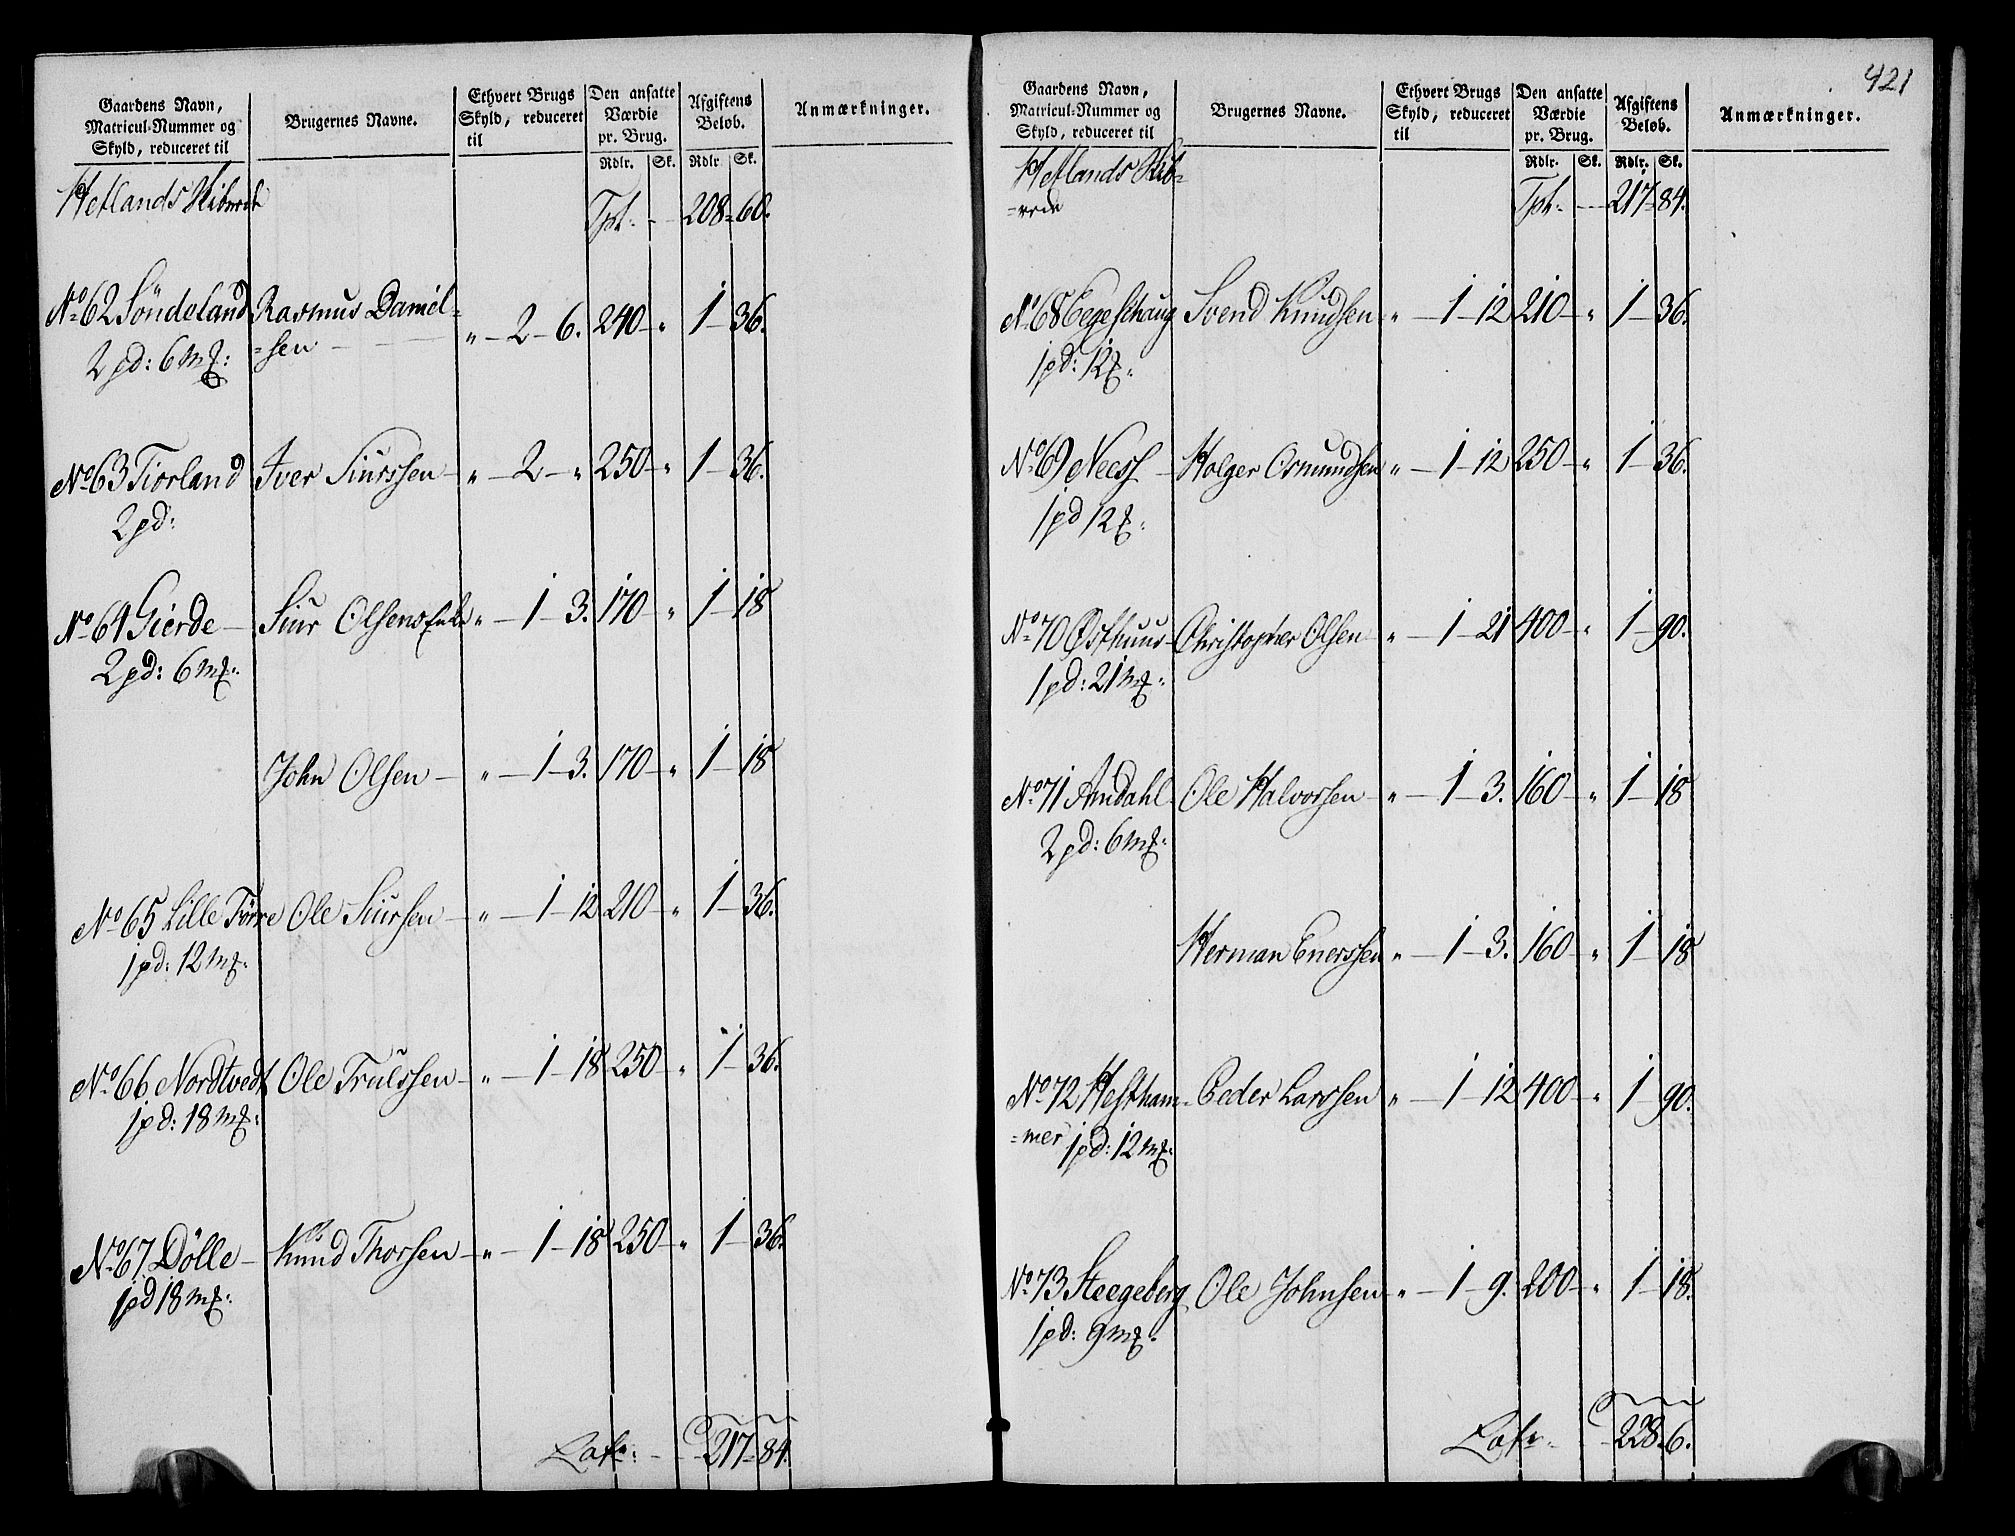 Gaardens Navn,
Matricul-Nummer og
Skyld, reduceret til
Brugernes Navne.
Ethvert Brugs
Skyld, reduceret
til
Den ansatte
Værdie
pr. Brug.
Rdlr. Sk.
Afgiftens
Beløb.
Rdlr. Sk.
Anmærkninger.
Hetlands Skibrede
Tpt. - - 208 - 60.
No 62 Söndeland Rasmus Daniel= „ - 2 - 6. 240 - „ 1 - 36.
2 pd: 6 mk: =sen
No 63 Tiorland Iver Siurssen - „ - 2 - „ 250 - „ 1 - 36.
2 pd:
No 64 Gierde - Siur Olsens Enke „ - 1 - 3. 170 - „ 1 - 18
2 pd: 6 mk:
John Olsen - „ - 1 - 3. 170 - „ 1 - 18
No 65 Lille Törre Ole Siursen - „ - 1 - 12 210 - „ 1 - 36.
1 pd: 12 mk:
No 66 Nordtvedt Ole Trulssen - „ - 1 - 18 250 „ 1 - 36.
1 pd: 18 mk:
No 67 Dölle - Knud Thorsen - „ - 1 - 18 250 - „ 1 - 36.
1 pd 18 mk:
Lat: - - 217 - 84.
421
Gaardens Navn,
Matricul-Nummer og
Skyld, reduceret til
Brugernes Navne.
Ethvert Brugs
Skyld, reduceret
til
Den ansatte
Værdie
pr. Brug.
Rdlr. Sk.
Afgiftens
Beløb.
Rdlr. Sk.
Anmærkninger.
Hetlands Skib=
=rede
Tpt. - - 217 - 84.
No 68 Egeschaug Svend Knudsen „ - 1 - 12 210 - „ 1 - 36.
1 pd: 12 k:
No 69 Neess - Holger Osmundsen „ - 1 - 12 250 - „ 1 - 36.
1 pd 12 k:
No 70 Østhuus - Christopher Olsen - „ - 1 - 21 400 - „ 1 - 90.
1 pd: 21 mk:
No 71 Amdahl Ole Halvorsen - „ - 1 - 3. 160 - „ 1 - 18
2 pd: 6 mk:
Herman Enerssen „ - 1 - 3. 160 - „ 1 - 18
No 72 Hestham= Peder Larssen „ - 1 - 12 400 - „ 1 - 90.
=mer 1 pd: 12 mk:
No 73 Steegeberg Ole Johnsen - „ - 1 - 9. 200 - „ 1 - 18.
1 pd: 9 mk:
Lat: - 228 - 6.